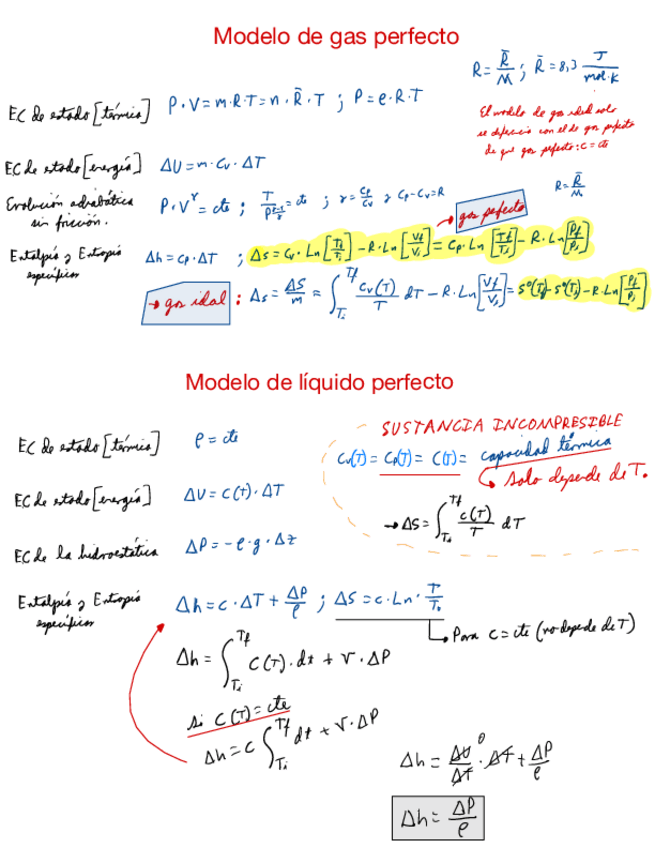 Modelo de gas perfecto
R = R̄/M ; R̄ = 8,3 J/mol·K
EC de estado [térmica] P·V = m·R·T = n·R̄·T ; P = ρ·R·T
El modelo de gas ideal solo
se diferencia con el de gas perfecto
de que gas perfecto: c = cte
EC de estado [energía] ΔU = m·Cv·ΔT
Evolución adiabática
sin fricción. P·V^γ = cte ; T/P^((γ-1)/γ) = cte ; γ = Cp/Cv y Cp - Cv = R
R = R̄/M
→ gas pefecto
Entalpía y Entropía
específicas Δh = cp·ΔT ; Δs = Cv·Ln[Tf/Ti] - R·Ln[Vf/Vi] = Cp·Ln[Tf/Ti] - R·Ln[Pf/Pi]
→ gas idal : Δs = ΔS/m = ∫_Ti^Tf Cv(T)/T dT - R·Ln[Vf/Vi] = s°(Tf) - s°(Ti) - R·Ln[Pf/Pi]
Modelo de líquido perfecto
EC de estado [térmica] ρ = cte
SUSTANCIA INCOMPRESIBLE
Cv(T) = Cp(T) = C(T) = capacidad térmica
Solo depende de T.
EC de estado [energía] ΔU = C(T)·ΔT
→ ΔS = ∫_Ti^Tf C(T)/T dT
EC de la hidroestática ΔP = -ρ·g·Δz
Entalpía y Entropía
específicas Δh = c·ΔT + ΔP/ρ ; ΔS = c·Ln·T/T₀
Para c = cte (no depende de T)
Δh = ∫_Ti^Tf C(T)·dt + v·ΔP
si C(T) = cte
Δh = C ∫_Ti^Tf dt + v·ΔP
Δh = ΔU/ΔT·ΔT + ΔP/ρ
Δh = ΔP/ρ